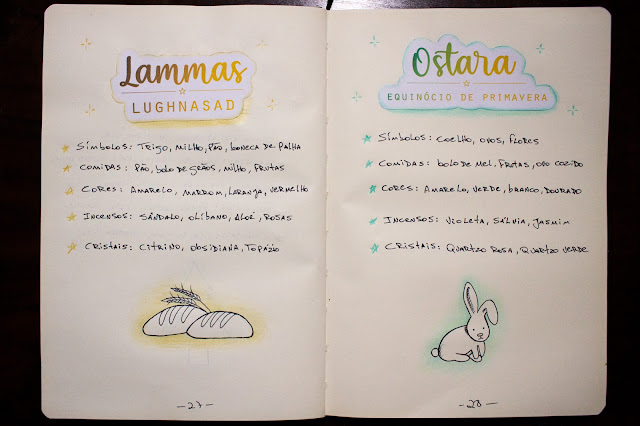 Lammas
LUGHNASAD
Símbolos: Trigo, milho, pão, boneca de palha
Comidas: Pão, bolo de grãos, milho, frutas
Cores: Amarelo, marrom, laranja, vermelho
Incensos: Sândalo, olíbano, aloé, rosas
Cristais: Citrino, obsidiana, topázio
-27-
Ostara
EQUINÓCIO DE PRIMAVERA
Símbolos: Coelho, ovos, flores
Comidas: Bolo de mel, frutas, ovo cozido
Cores: Amarelo, verde, branco, dourado
Incensos: Violeta, sálvia, jasmim
Cristais: Quartzo rosa, quartzo verde
-28-